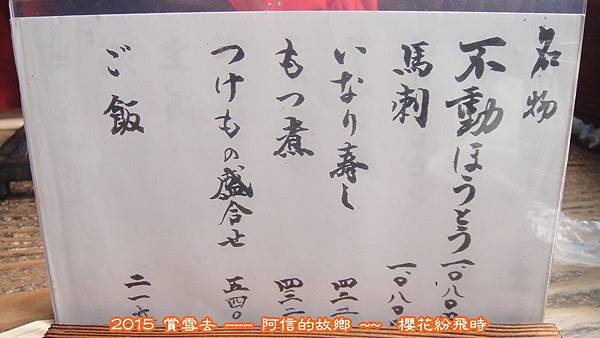 名物
不動ほうとう 一、〇八〇
馬刺 一、〇八〇
いなり寿し 四三二
もつ煮 四三二
つけもの盛合せ 五四〇
ご飯 二一六
2015 賞雪去 --- 阿信的故鄉 ~~ 櫻花紛飛時